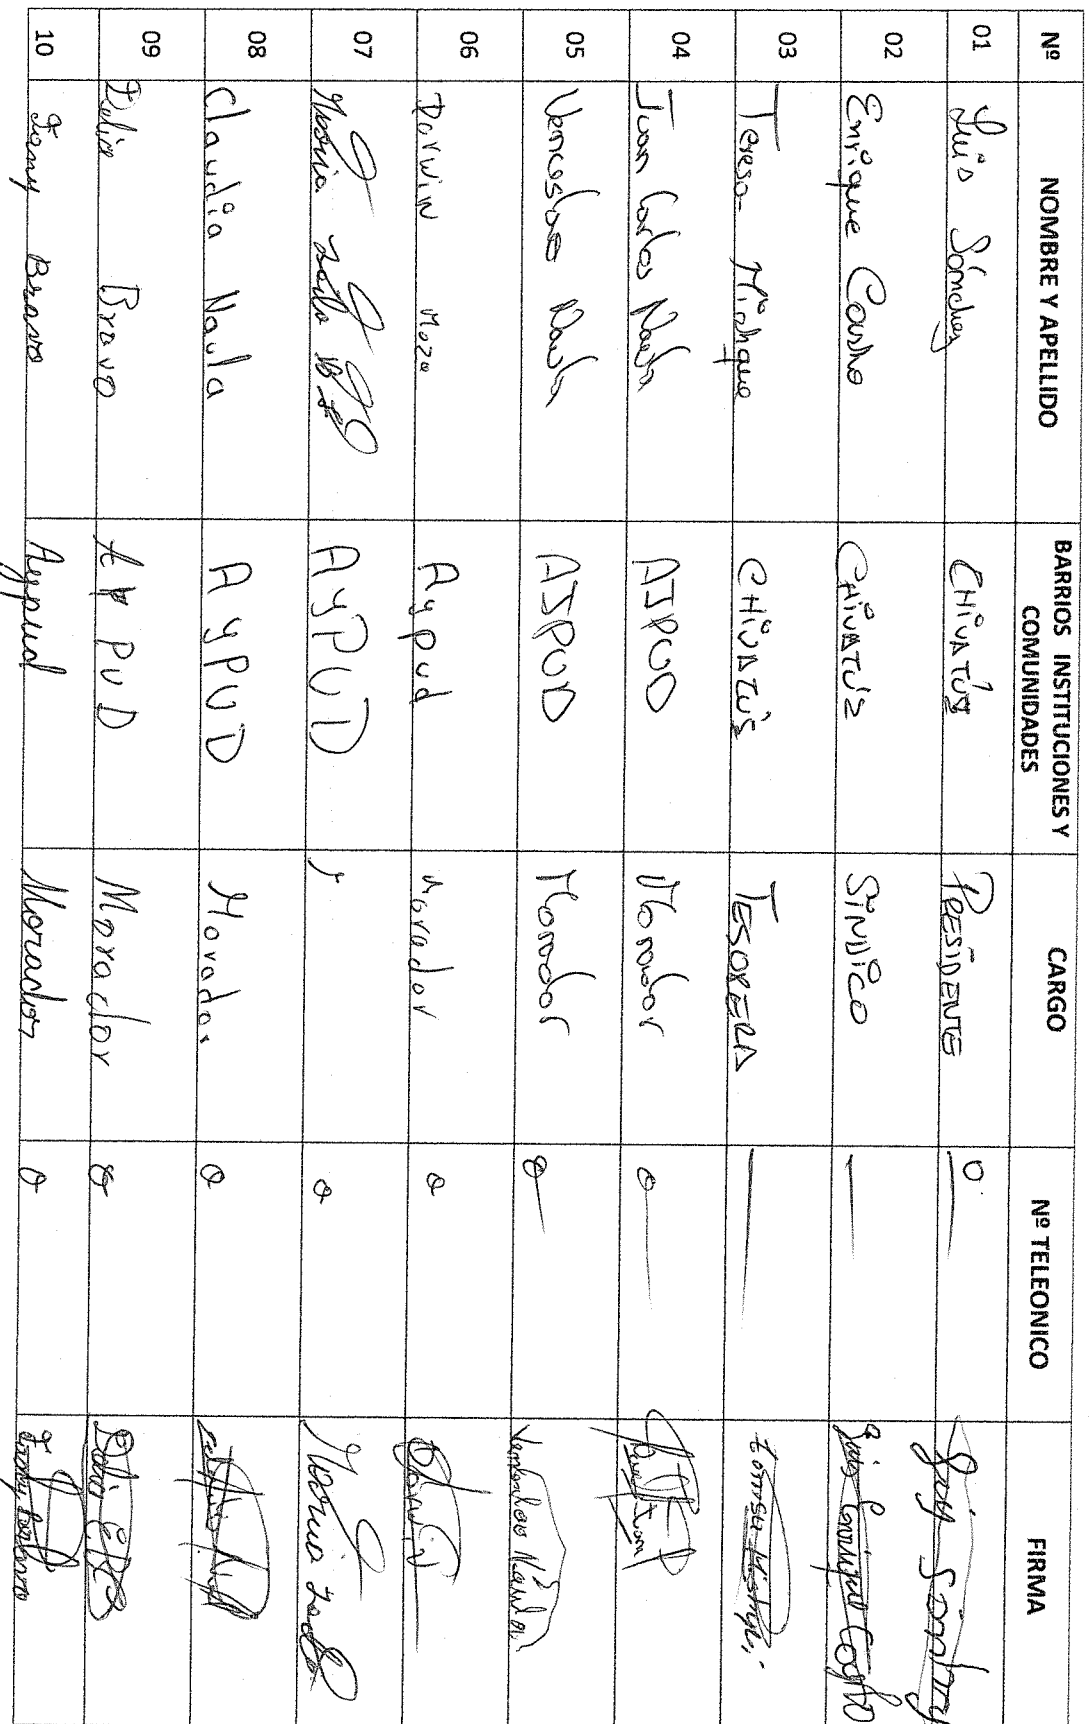 Nº NOMBRE Y APELLIDO BARRIOS INSTITUCIONES Y COMUNIDADES CARGO Nº TELEONICO FIRMA
01 Luis Sánchez CHIVATÚS PRESIDENTE 0 Luis Sánchez
02 Enrique Coosho CHIVATÚS SINDICO Luis Enrique
03 Teresa CHIVATÚS TESORERA
04 Juan Carlos Naula AJPUD Morador 0
05 Venceslao Naula AJPUD Morador 0 Venceslao Naula
06 Darwin Mozo Aypud Morador 0 Darwin
07 María AYPUD 0 María
08 Claudia Naula AYPUD Morador 0
09 Delia Bravo AYPUD Morador 0 Delia
10 Fanny Bravo Aypud Morador 0 Fanny